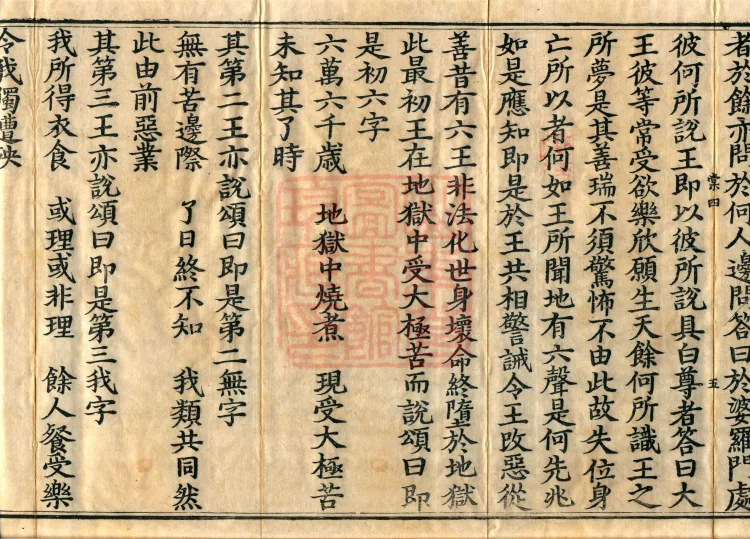 者於餘亦問於何人邊問答曰於婆羅門處
彼何所說王即以彼所說具白尊者答曰大
棠四
五
王彼等常受欲樂欣願生天餘何所識王之
所夢是其善瑞不須驚怖不由此故失位身
亡所以者何如王所聞地有六聲是何先兆
如是應知即是於王共相警誡令王改惡從
善昔有六王非法化世身壞命終墮於地獄
此最初王在地獄中受大極苦而說頌曰即
是初六字
六萬六千歲　地獄中燒煮　現受大極苦
未知其了時
其第二王亦說頌曰即是第二無字
無有苦邊際　了日終不知　我類共同然
此由前惡業
其第三王亦說頌曰即是第三我字
我所得衣食　或理或非理　餘人餐受樂
令我獨遭殃